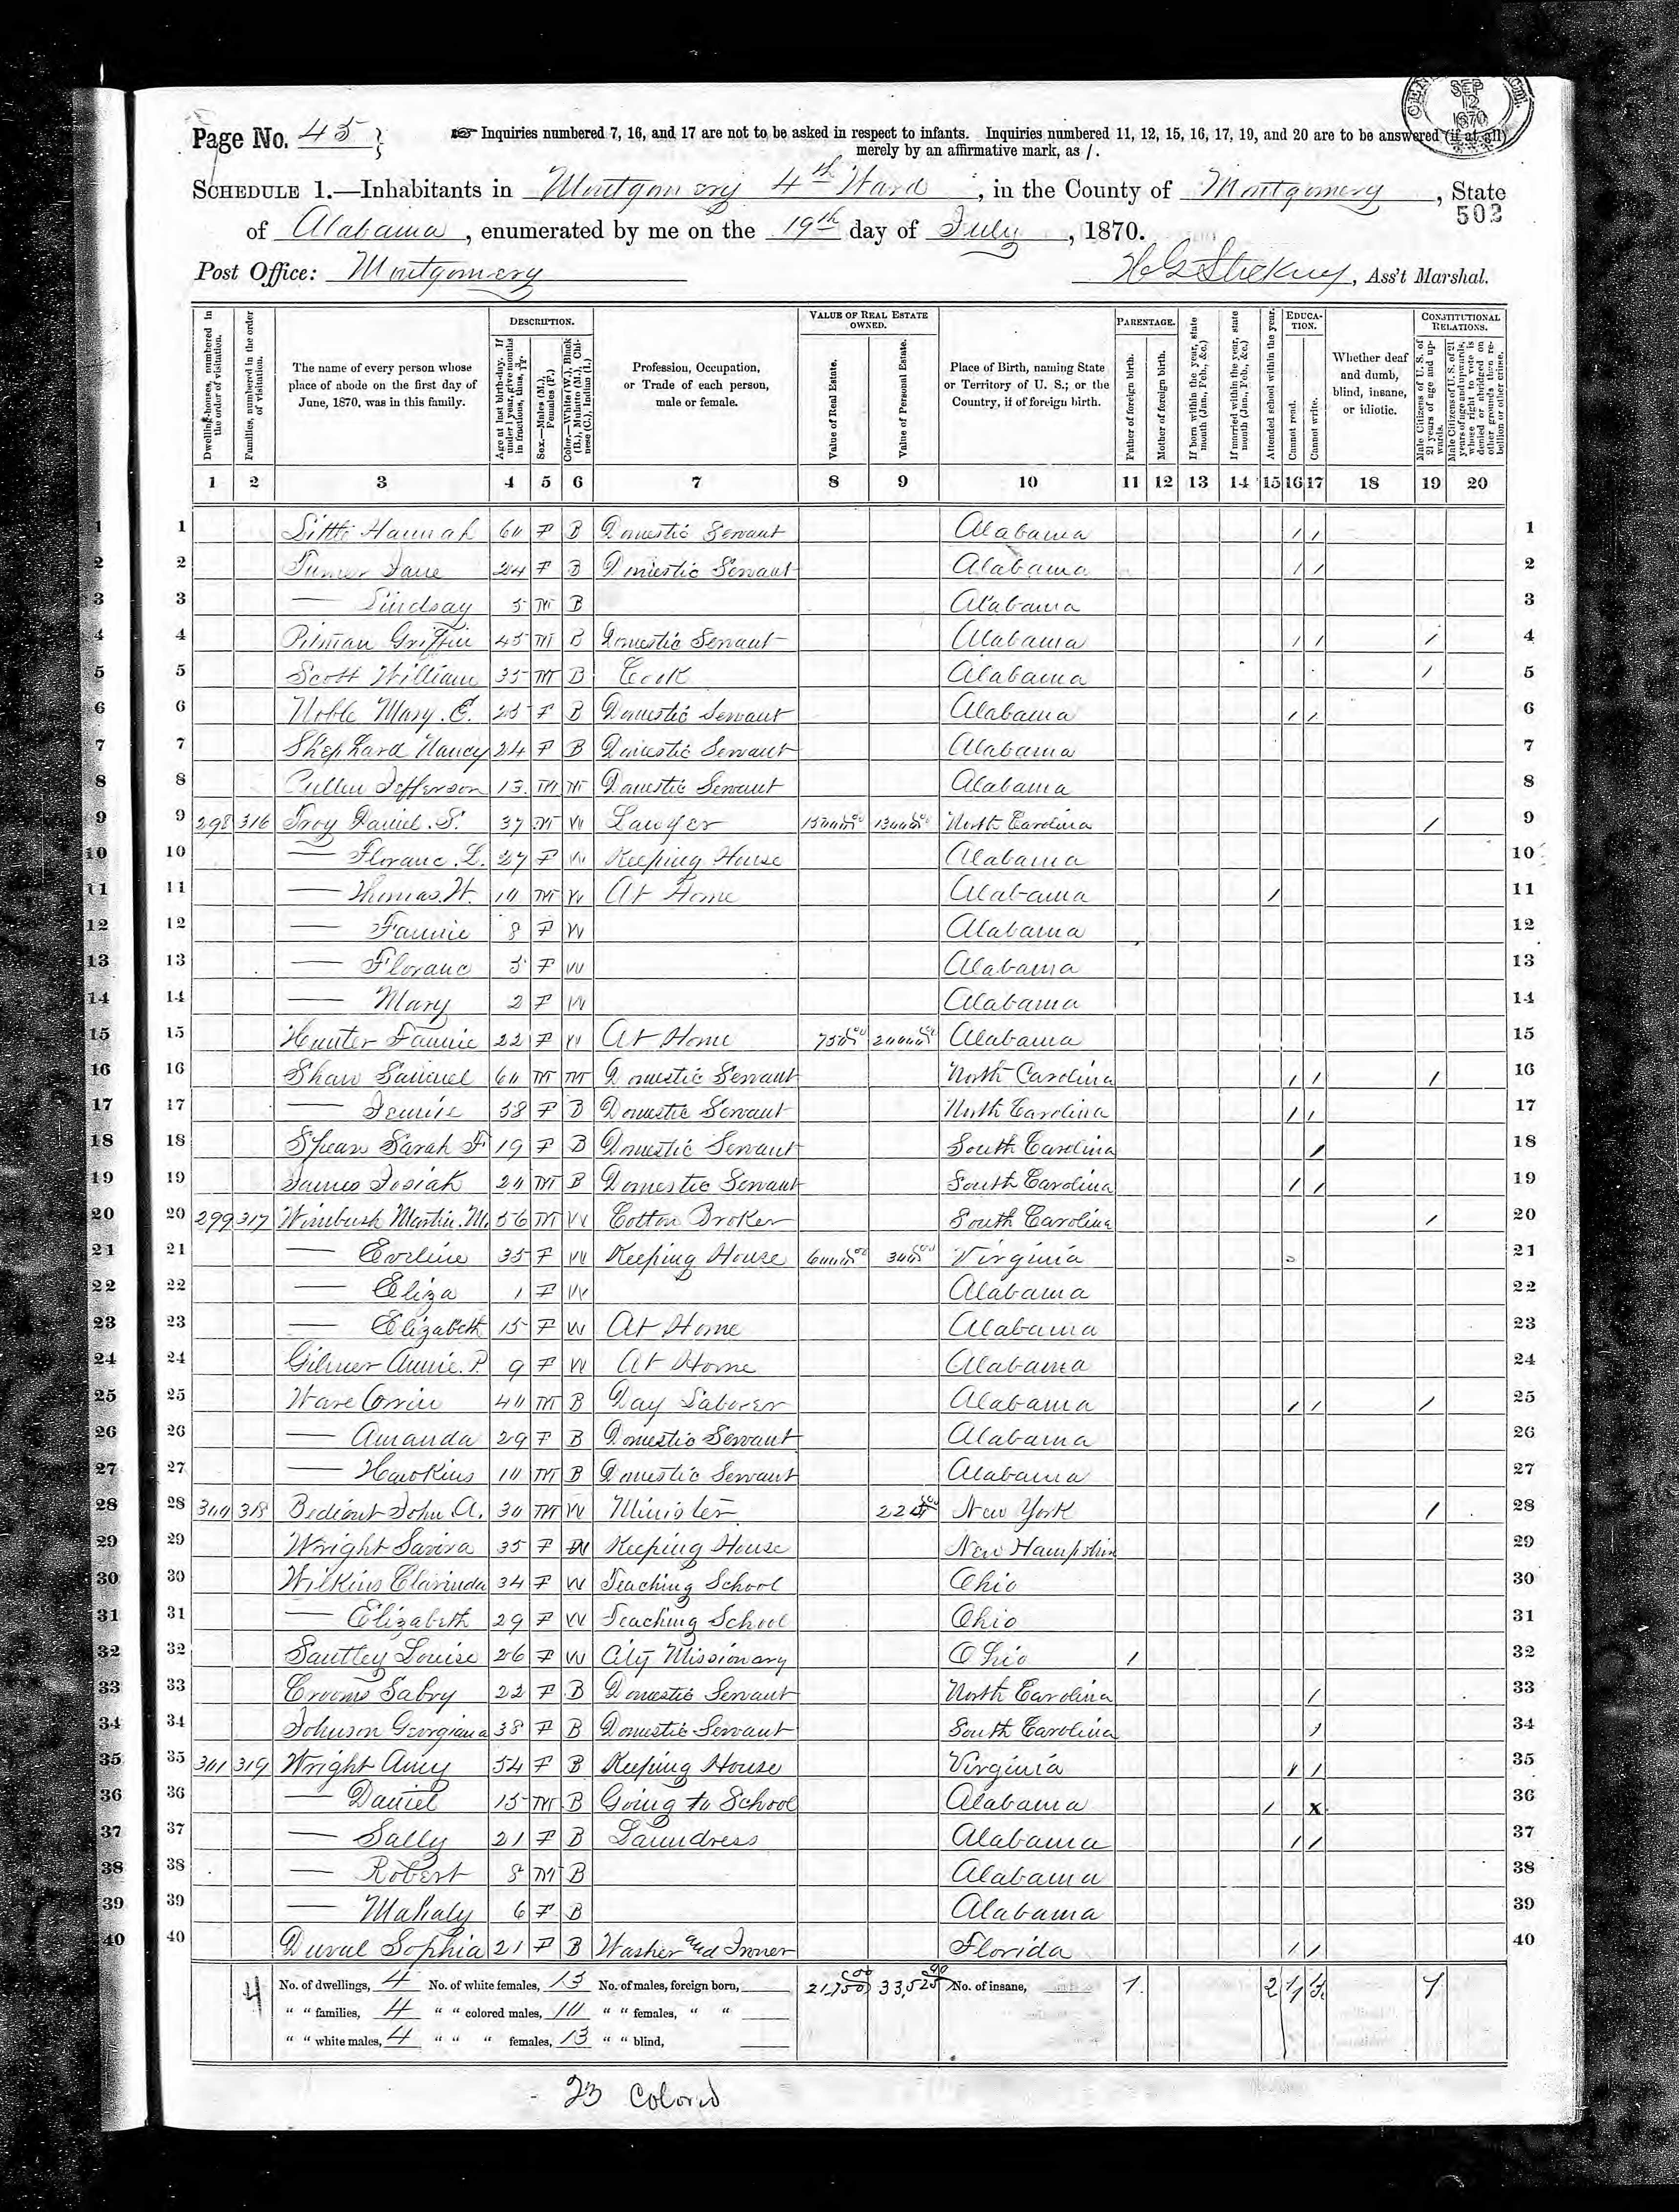 CEN
SEP
12
1870
Page No. 45 }
Inquiries numbered 7, 16, and 17 are not to be asked in respect to infants. Inquiries numbered 11, 12, 15, 16, 17, 19, and 20 are to be answered (if at all)
merely by an affirmative mark, as /.
SCHEDULE 1.—Inhabitants in Montgomery 4th Ward, in the County of Montgomery, State
503
of Alabama, enumerated by me on the 19th day of July, 1870.
Post Office: Montgomery
, Ass't Marshal.
Dwelling-houses, numbered in the order of visitation.
Families, numbered in the order of visitation.
The name of every person whose place of abode on the first day of June, 1870, was in this family.
DESCRIPTION.
Age at last birth-day. If under 1 year, give months in fractions, thus,
Sex.—Males (M.), Females (F.)
Color.—White (W.), Black (B.), Mulatto (M.), Chinese (C.), Indian (I.)
Profession, Occupation, or Trade of each person, male or female.
VALUE OF REAL ESTATE OWNED.
Value of Real Estate.
Value of Personal Estate.
Place of Birth, naming State or Territory of U. S.; or the Country, if of foreign birth.
PARENTAGE.
Father of foreign birth.
Mother of foreign birth.
If born within the year, state month (Jan., Feb., &c.)
If married within the year, state month (Jan., Feb., &c.)
Attended school within the year.
EDUCATION.
Cannot read.
Cannot write.
Whether deaf and dumb, blind, insane, or idiotic.
CONSTITUTIONAL RELATIONS.
Male Citizens of U. S. of 21 years of age and upwards.
Male Citizens of U. S. of 21 years of age and upwards, whose right to vote is denied or abridged on other grounds than rebellion or other crime.
1 2 3 4 5 6 7 8 9 10 11 12 13 14 15 16 17 18 19 20
1 1 Hannah 60 F B Domestic Servant Alabama / / 1
2 2 Turner Jane 24 F B Domestic Servant Alabama / / 2
3 3 — Lindsay 5 M B Alabama 3
4 4 Pitman Griffin 45 M B Domestic Servant Alabama / / / 4
5 5 Scott William 35 M B Cook Alabama / 5
6 6 Noble Mary. E. 25 F B Domestic Servant Alabama / / 6
7 7 Shephard Nancy 24 F B Domestic Servant Alabama 7
8 8 Cullen Jefferson 13 M M Domestic Servant Alabama 8
9 9 298 316 Troy Daniel. S. 37 M W Lawyer North Carolina / 9
10 10 — Floranc. L. 27 F W Keeping House Alabama 10
11 11 — Thomas. W. 10 M W At Home Alabama / 11
12 12 — Fannie 8 F W Alabama 12
13 13 — Floranc 5 F W Alabama 13
14 14 — Mary 2 F W Alabama 14
15 15 Hunter Fannie 22 F W At Home Alabama 15
16 16 Shaw Samuel 60 M M Domestic Servant North Carolina / / / 16
17 17 — 58 F B Domestic Servant North Carolina / / 17
18 18 Spear Sarah F. 19 F B Domestic Servant South Carolina / 18
19 19 James Josiah 20 M B Domestic Servant South Carolina / / 19
20 20 299 317 Wimbush Martin. M. 56 M W Cotton Broker South Carolina / 20
21 21 — Eveline 35 F W Keeping House 6000 00 300 00 Virginia 21
22 22 — Eliza 1 F W Alabama 22
23 23 — Elizabeth 15 F W At Home Alabama 23
24 24 Gilmer Annie. P. 9 F W At Home Alabama 24
25 25 Ware 40 M B Day Laborer Alabama / / / 25
26 26 — Amanda 29 F B Domestic Servant Alabama 26
27 27 — Hawkins 10 M B Domestic Servant Alabama 27
28 28 300 318 John A. 30 M W Minister 225 00 New York / 28
29 29 Wright 35 F W Keeping House New Hampshire 29
30 30 Wilkins Clarinda 34 F W Teaching School Ohio 30
31 31 — Elizabeth 29 F W Teaching School Ohio 31
32 32 Santley Louise 26 F W City Missionary Ohio / 32
33 33 Crooms Sabry 22 F B Domestic Servant North Carolina / 33
34 34 Johnson Georgiana 38 F B Domestic Servant South Carolina / 34
35 35 301 319 Wright Amy 54 F B Keeping House Virginia / / 35
36 36 — Daniel 15 M B Going to School Alabama / x 36
37 37 — Sally 21 F B Laundress Alabama / / 37
38 38 — Robert 8 M B Alabama 38
39 39 — Mahaly 6 F B Alabama 39
40 40 Duval Sophia 21 F B Washer and Ironer Florida / / 40
4 No. of dwellings, 4 No. of white females, 13 No. of males, foreign born, 21,750 00 33,525 00 No. of insane, 1 2 7
" " families, 4 " " colored males, 10 " " females, " "
" " white males, 4 " " " females, 13 " " blind,
- 23 Colored